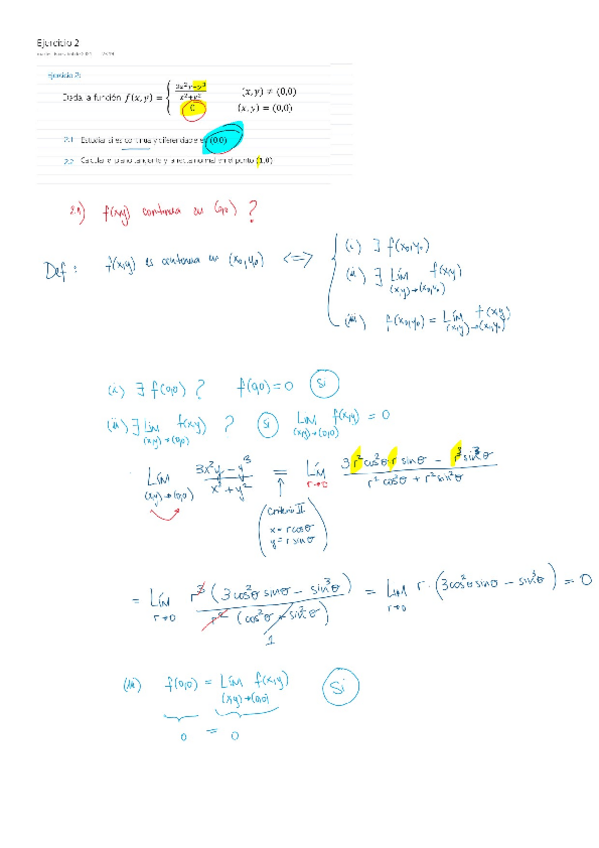 Ejercicio 2
Ejercicio 2:
Dada la función f(x,y) = { (3x²y−y³)/(x²+y²) (x,y) ≠ (0,0)
0 (x,y) = (0,0)
2.1 Estudiar si es continua y diferenciable en (0,0)
2.2 Calcular el plano tangente y la recta normal en el punto (1,0)
2.1) f(x,y) continua en (0,0) ?
Def: f(x,y) es continua en (x₀,y₀) <=> { (i) ∃ f(x₀,y₀)
(ii) ∃ Lím f(x,y)
(x,y)→(x₀,y₀)
(iii) f(x₀,y₀) = Lím f(x,y)
(x,y)→(x₀,y₀)
(i) ∃ f(0,0) ? f(0,0) = 0 Si
(ii) ∃ Lím f(x,y) ? Si Lím f(x,y) = 0
(x,y)→(0,0) (x,y)→(0,0)
Lím (3x²y − y³)/(x²+y²) = Lím (3r²cos²θ·r sinθ − r³sin³θ)/(r²cos²θ + r²sin²θ)
(x,y)→(0,0) r→0
(Criterio II.
x = r cosθ
y = r sinθ)
= Lím r³(3cos²θ sinθ − sin³θ)/(r²(cos²θ + sin²θ)) = Lím r·(3cos²θ sinθ − sin³θ) = 0
r→0 r→0
1
(iii) f(0,0) = Lím f(x,y) Si
(x,y)→(0,0)
0 = 0